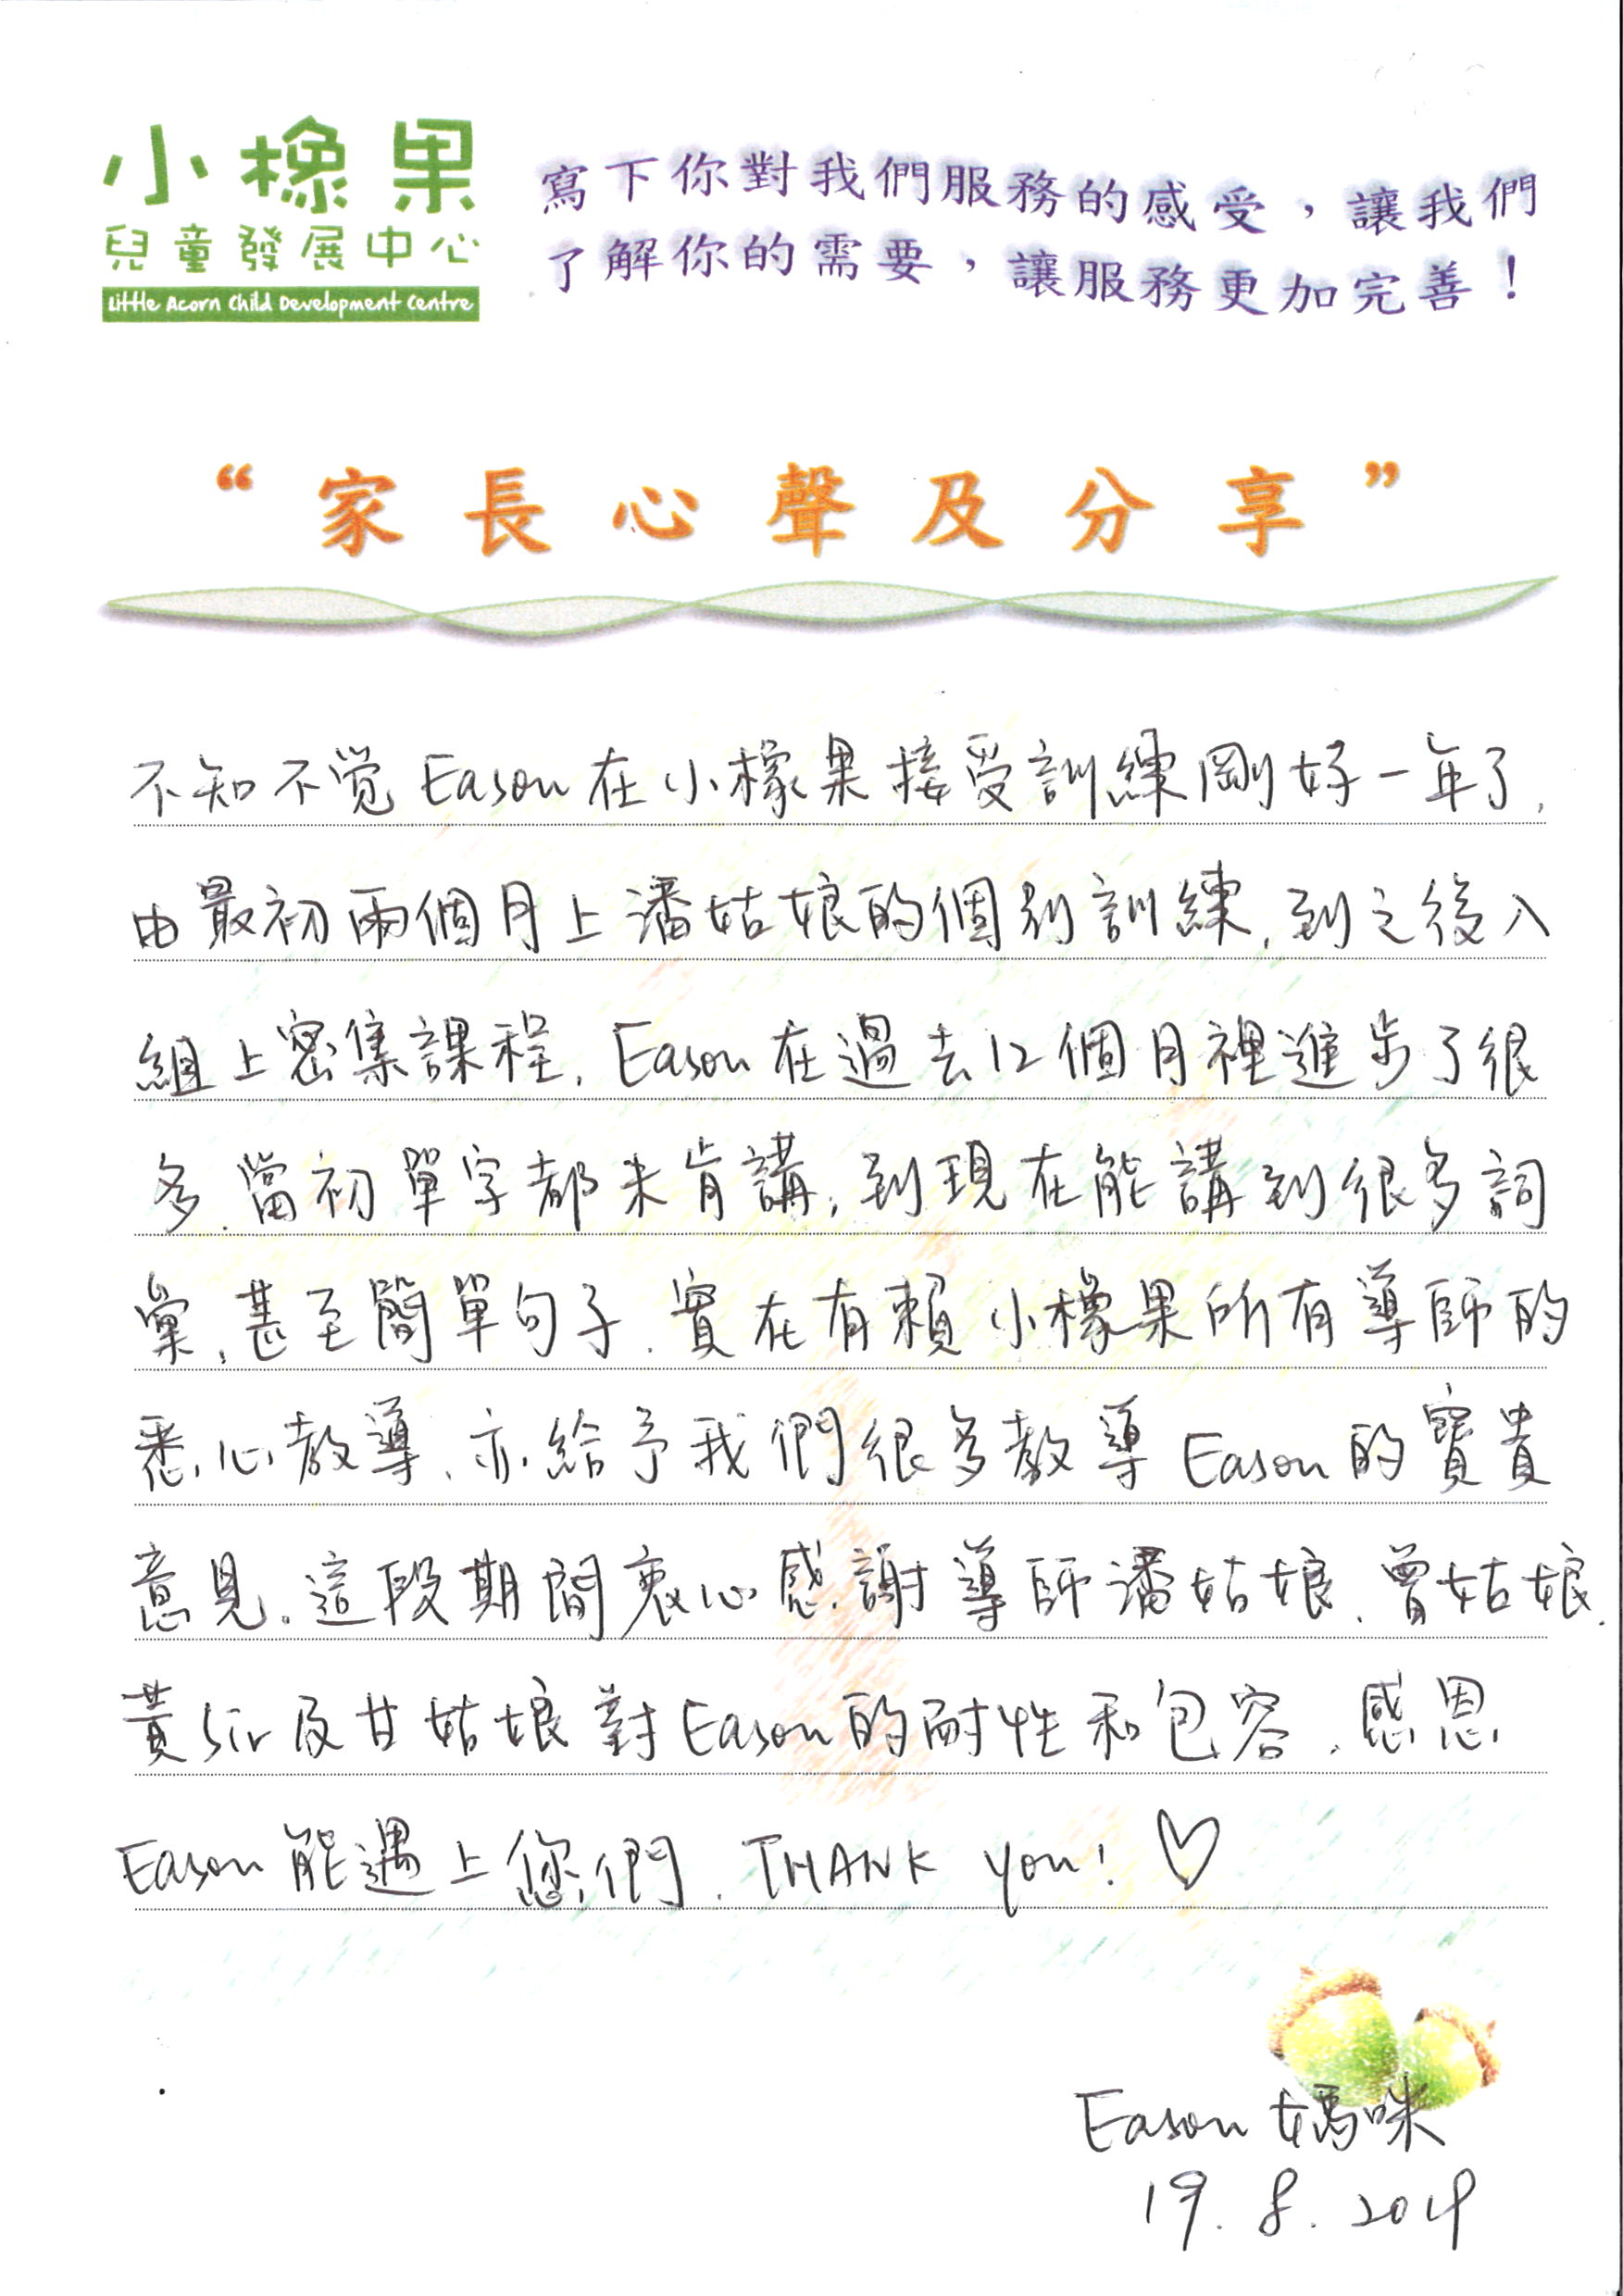 小橡果
兒童發展中心
Little Acorn Child Development Centre
寫下你對我們服務的感受，讓我們
了解你的需要，讓服務更加完善！
“家長心聲及分享”
不知不覚 Eason 在小橡果接受訓練剛好一年了,
由最初兩個月上潘姑娘的個別訓練, 到之後入
組上密集課程, Eason 在過去12個月裡進步了很
多. 當初單字都未肯講, 到現在能講到很多詞
彙, 甚至簡單句子. 實在有賴小橡果所有導師的
悉心教導、亦給予我們很多教導 Eason 的寶貴
意見。這段期間衷心感謝導師潘姑娘、曾姑娘、
黃Sir及甘姑娘對Eason的耐性和包容, 感恩
Eason 能遇上您們. THANK you! ♡
Eason 媽咪
19. 8. 2019